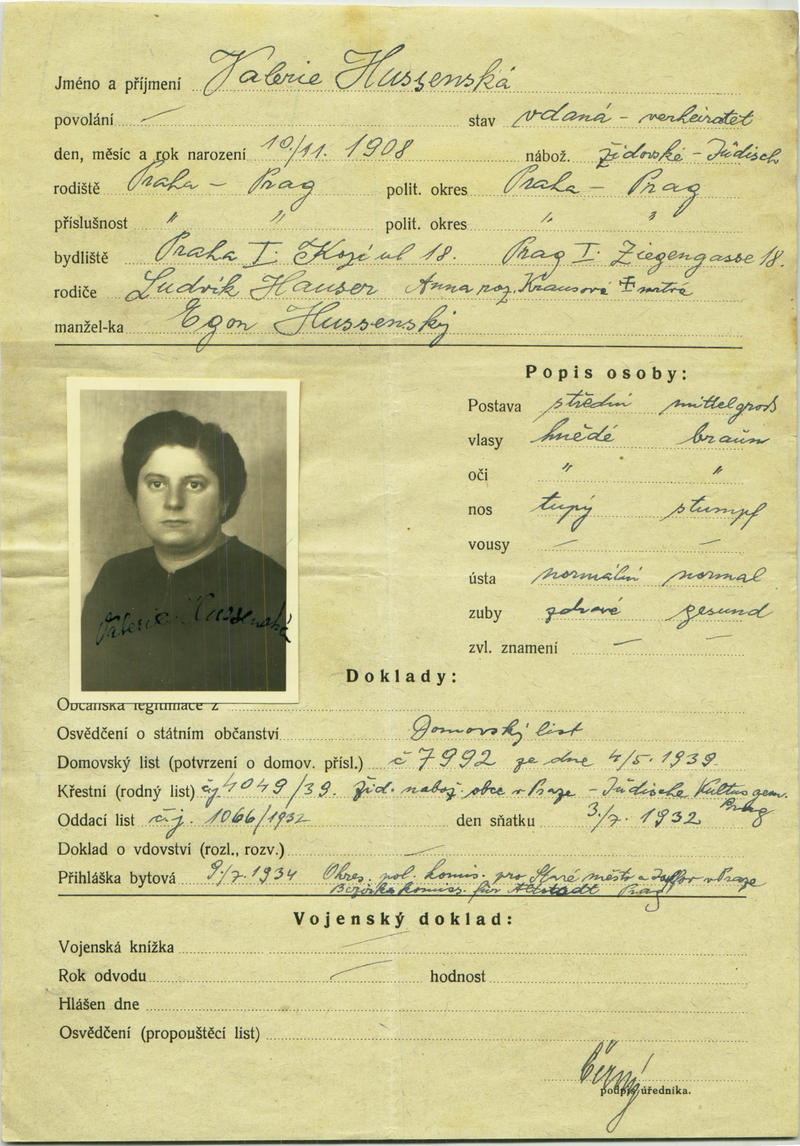 Jméno a příjmení Valerie Hussenská
povolání — stav vdaná - verheiratet
den, měsíc a rok narození 10/11. 1908 nábož. židovské - Jüdisch
rodiště Praha - Prag polit. okres Praha - Prag
příslušnost " " polit. okres " "
bydliště Praha I. Kozí ul 18. Prag I. Ziegengasse 18.
rodiče Ludvík Hauser Anna roz. Krausová † mrtvá
manžel-ka Egon Hussenský
Popis osoby:
Postava střední mittelgross
vlasy hnědé braun
oči " "
nos tupý stumpf
vousy — —
ústa normální normal
zuby zdravé gesund
zvl. znamení — —
Valerie Hussenská
Doklady:
Občanská legitimace z
Osvědčení o státním občanství Domovský list
Domovský list (potvrzení o domov. přísl.) č 7992 ze dne 4/5. 1939.
Křestní (rodný list) čj 4049/39. žid. nábož. obce v Praze - Jüdische Kultusgem. Prag
Oddací list č.j. 1066/1932 den sňatku 3./7. 1932
Doklad o vdovství (rozl., rozv.) —
Přihláška bytová 9./7. 1934 Okres. pol. komis. pro Staré město a v Praze
Bezirkskomiss. für Altstadt Prag
Vojenský doklad:
Vojenská knížka —
Rok odvodu — hodnost
Hlášen dne
Osvědčení (propouštěcí list)
Černý
podpis úředníka.